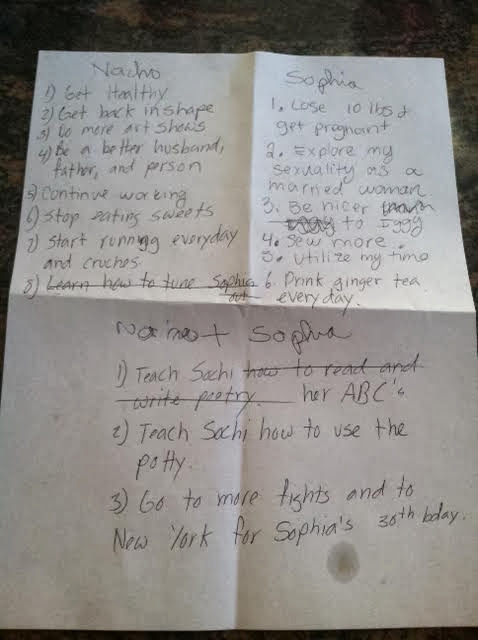 Nacho
1) Get Healthy
2) Get back in shape
3) Go more art shows
4) Be a better husband,
father, and person
5) Continue working
6) Stop eating sweets
7) Start running everyday
and cruches.
8) Learn how to tune Sophia
out
Sophia
1. Lose 10 lbs &
get pregnant
2. Explore my
sexuality as a
married woman
3. Be nicer
to Iggy
4. Sew more.
5. Utilize my time
6. Drink ginger tea
everyday.
+ Sophia
1) Teach Sochi how to read and
write poetry. her ABC's
2) Teach Sochi how to use the
potty.
3) Go to more fights and to
New York for Sophia's 30th bday.